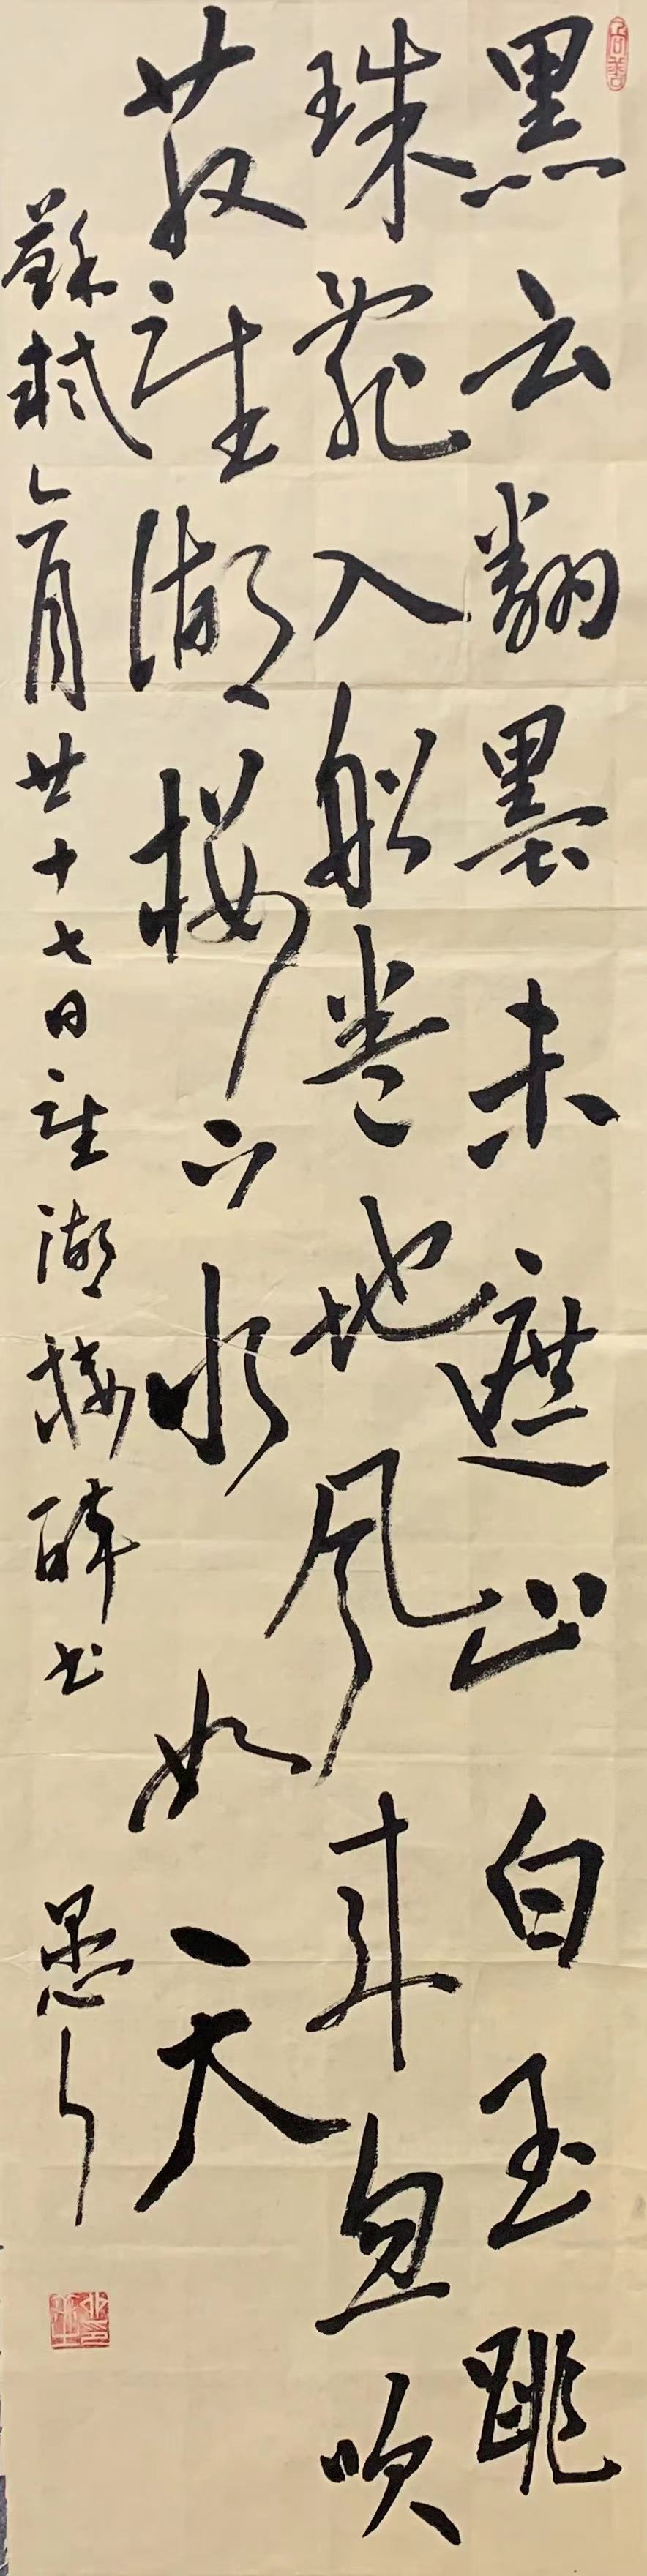 黑云翻墨未遮山白玉跳
珠乱入船卷地风来忽吹
散望湖楼下水如天
蘇軾六月廿十七日望湖楼醉书 愚